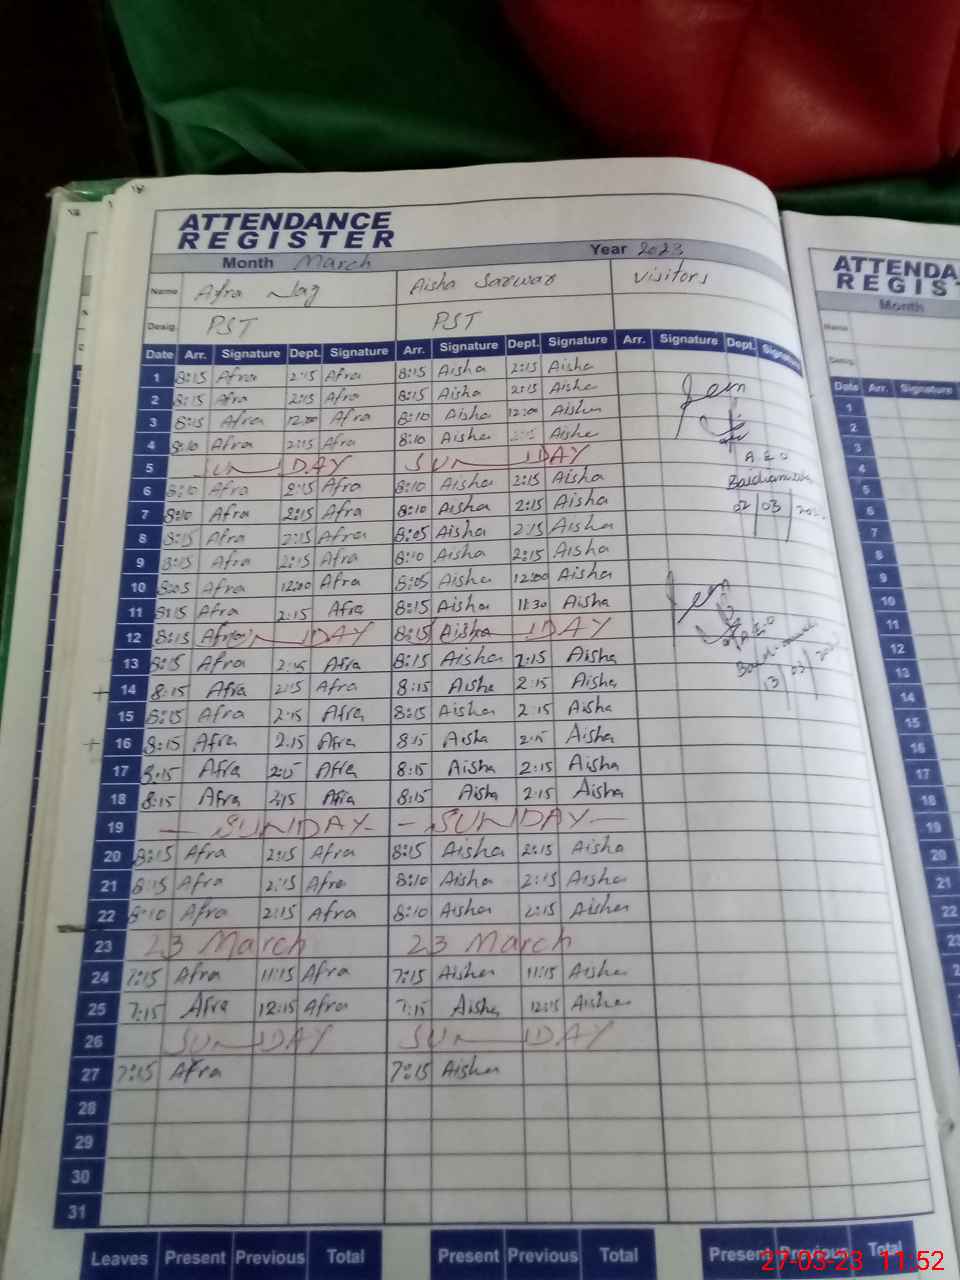 ATTENDANCE
REGISTER
Month March Year 2023
Name Afra Naz Aisha Sarwar Visitors
Desig. PST PST
Date Arr. Signature Dept. Signature Arr. Signature Dept. Signature Arr. Signature Dept. Signature
1 8:15 Afra 2:15 Afra 8:15 Aisha 2:15 Aisha
2 8:15 Afra 2:15 Afra 8:15 Aisha 2:15 Aisha
3 8:15 Afra 12:00 Afra 8:10 Aisha 12:00 Aisha
4 8:10 Afra 2:15 Afra 8:10 Aisha Aisha
5 SUNDAY SUNDAY A.E.O
6 8:10 Afra 2:15 Afra 8:10 Aisha 2:15 Aisha
7 8:10 Afra 2:15 Afra 8:10 Aisha 2:15 Aisha 02/03/
8 8:15 Afra 2:15 Afra 8:05 Aisha 2:15 Aisha
9 8:15 Afra 2:15 Afra 8:10 Aisha 2:15 Aisha
10 8:05 Afra 12:00 Afra 8:05 Aisha 12:00 Aisha
11 8:15 Afra 2:15 Afra 8:15 Aisha 11:30 Aisha
12 8:15 Afra DAY 8:15 Aisha DAY A.E.O
13 8:15 Afra 2:15 Afra 8:15 Aisha 2:15 Aisha
14 8:15 Afra 2:15 Afra 8:15 Aisha 2:15 Aisha 13/03/
15 8:15 Afra 2:15 Afra 8:15 Aisha 2:15 Aisha
16 8:15 Afra 2:15 Afra 8:15 Aisha 2:15 Aisha
17 8:15 Afra 2:15 Afra 8:15 Aisha 2:15 Aisha
18 8:15 Afra 2:15 Afra 8:15 Aisha 2:15 Aisha
19 - SUNDAY - - SUNDAY -
20 8:15 Afra 2:15 Afra 8:15 Aisha 2:15 Aisha
21 8:15 Afra 2:15 Afra 8:10 Aisha 2:15 Aisha
22 8:10 Afra 2:15 Afra 8:10 Aisha 2:15 Aisha
23 23 March 23 March
24 7:15 Afra 11:15 Afra 7:15 Aisha 11:15 Aisha
25 7:15 Afra 12:15 Afra 7:15 Aisha 12:15 Aisha
26 SUNDAY SUNDAY
27 7:15 Afra 7:15 Aisha
28
29
30
31
Leaves Present Previous Total Present Previous Total Present Previous Total
27-03-23 11:52
ATTENDA
REGIST
Month
Name
Desig.
Date Arr. Signature
1
2
3
4
5
6
7
8
9
10
11
12
13
14
15
16
17
18
19
20
21
22
23